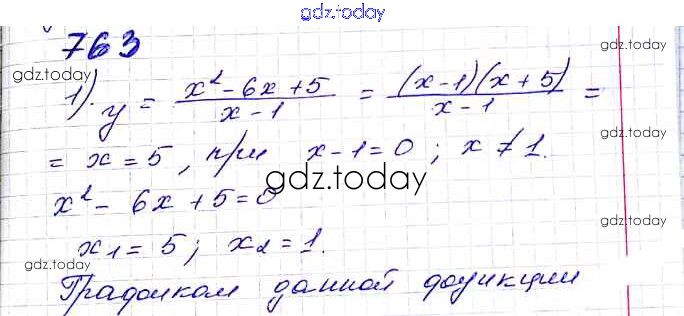 gdz.today
763
gdz.today
gdz.today
1). y = (x² - 6x + 5)/(x - 1) = (x-1)(x+5)/(x-1) =
= x = 5, при x - 1 = 0; x ≠ 1.
gdz.today
x² - 6x + 5 = 0
gdz.today
x₁ = 5; x₂ = 1.
gdz.today
Графиком данной функции
gdz.today